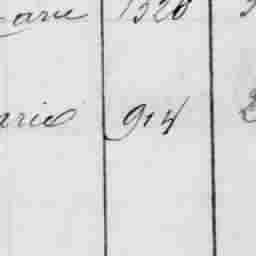 arie 1320
arie 914